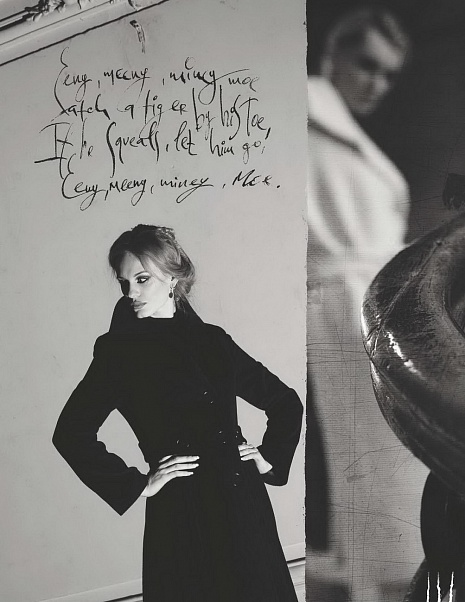 Eeny, meeny, miney moe
Catch a tiger by his toe,
If he squeals, let him go,
Eeny, meeny, miney, Moe.